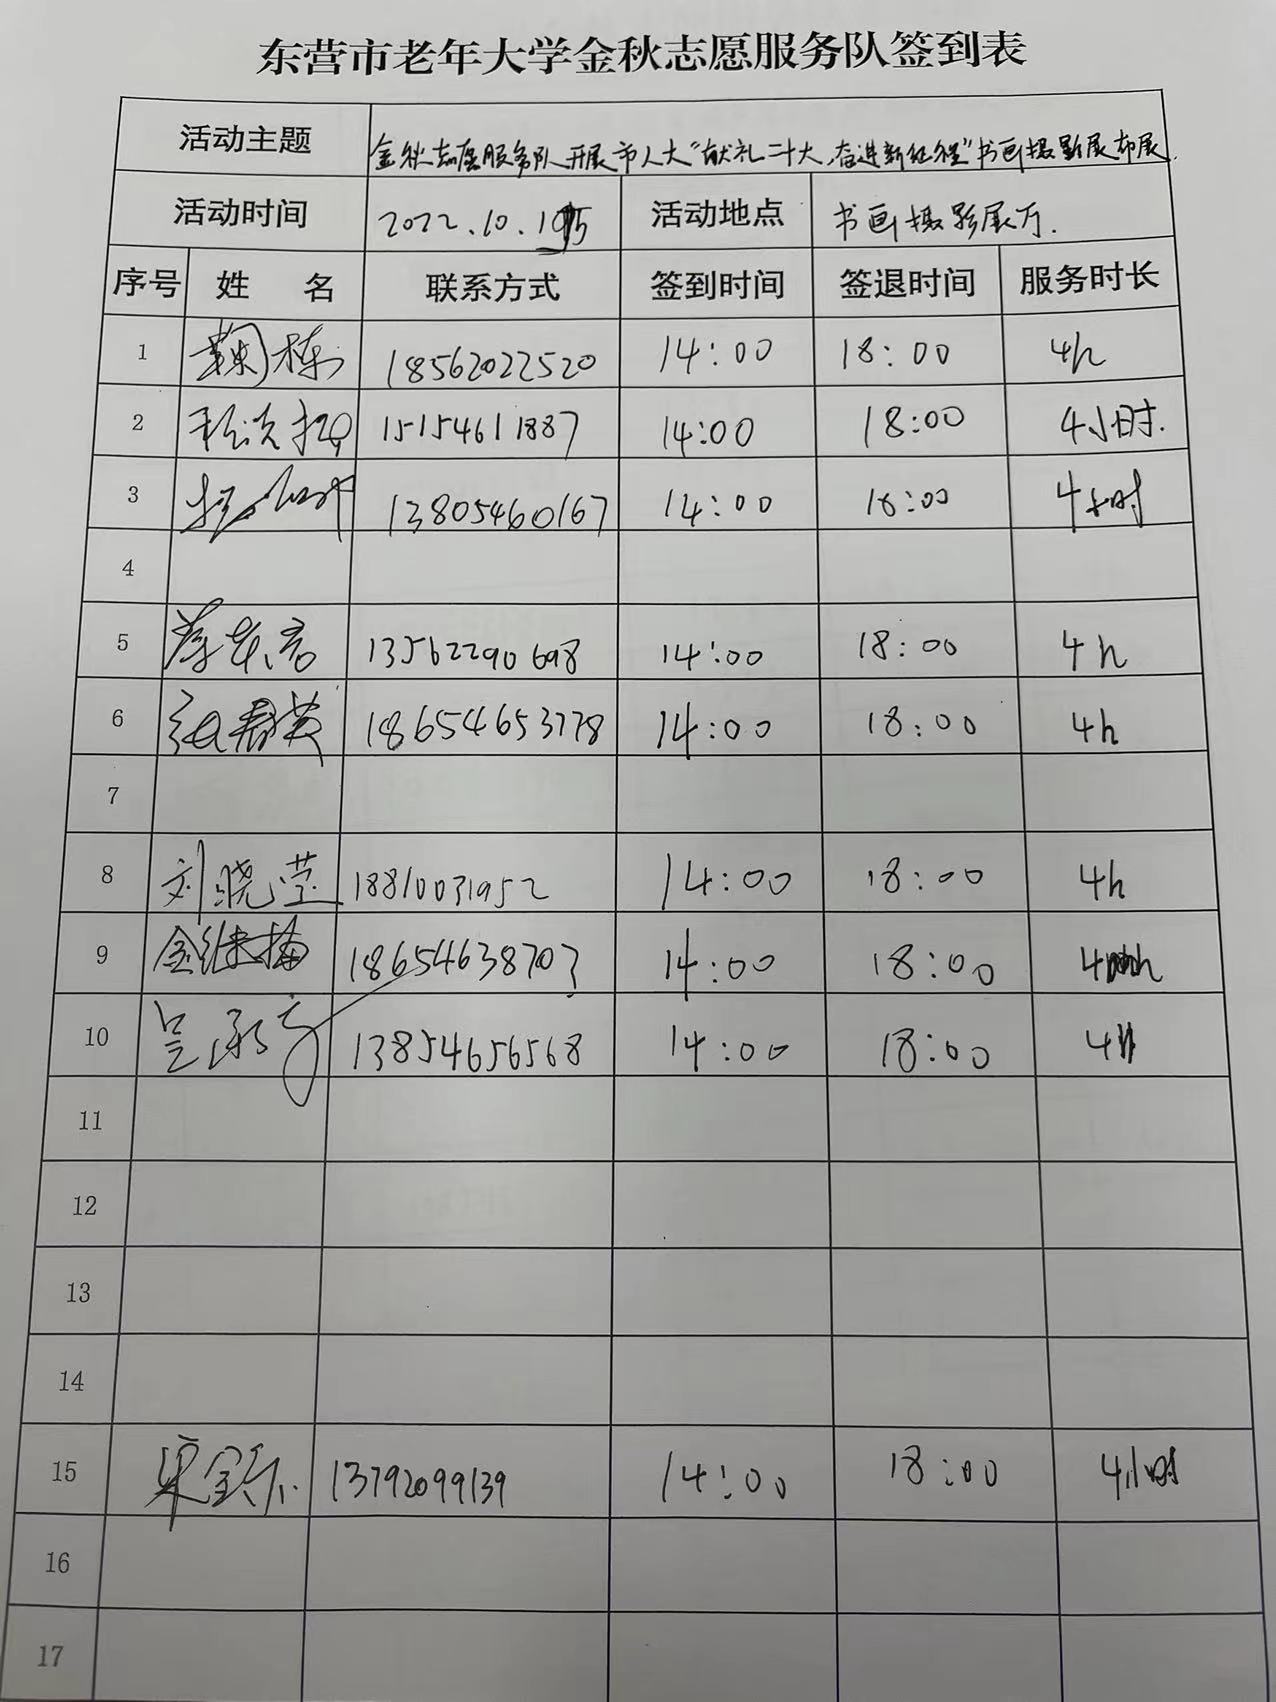 东营市老年大学金秋志愿服务队签到表
活动主题 金秋志愿服务队开展市人大“献礼二十大,奋进新征程”书画摄影展布展.
活动时间 2022.10. 活动地点 书画摄影展厅.
序号 姓名 联系方式 签到时间 签退时间 服务时长
1 栋 18562022520 14:00 18:00 4h
2 15154611887 14:00 18:00 4小时.
3 13805460167 14:00 18:00 4小时
4
5 13562290698 14:00 18:00 4h
6 18654653778 14:00 18:00 4h
7
8 刘晓莹 18810031952 14:00 18:00 4h
9 金继梅 18654638703 14:00 18:00 4h
10 13854656568 14:00 18:00 4h
11
12
13
14
15 13792099139 14:00 18:00 4小时
16
17